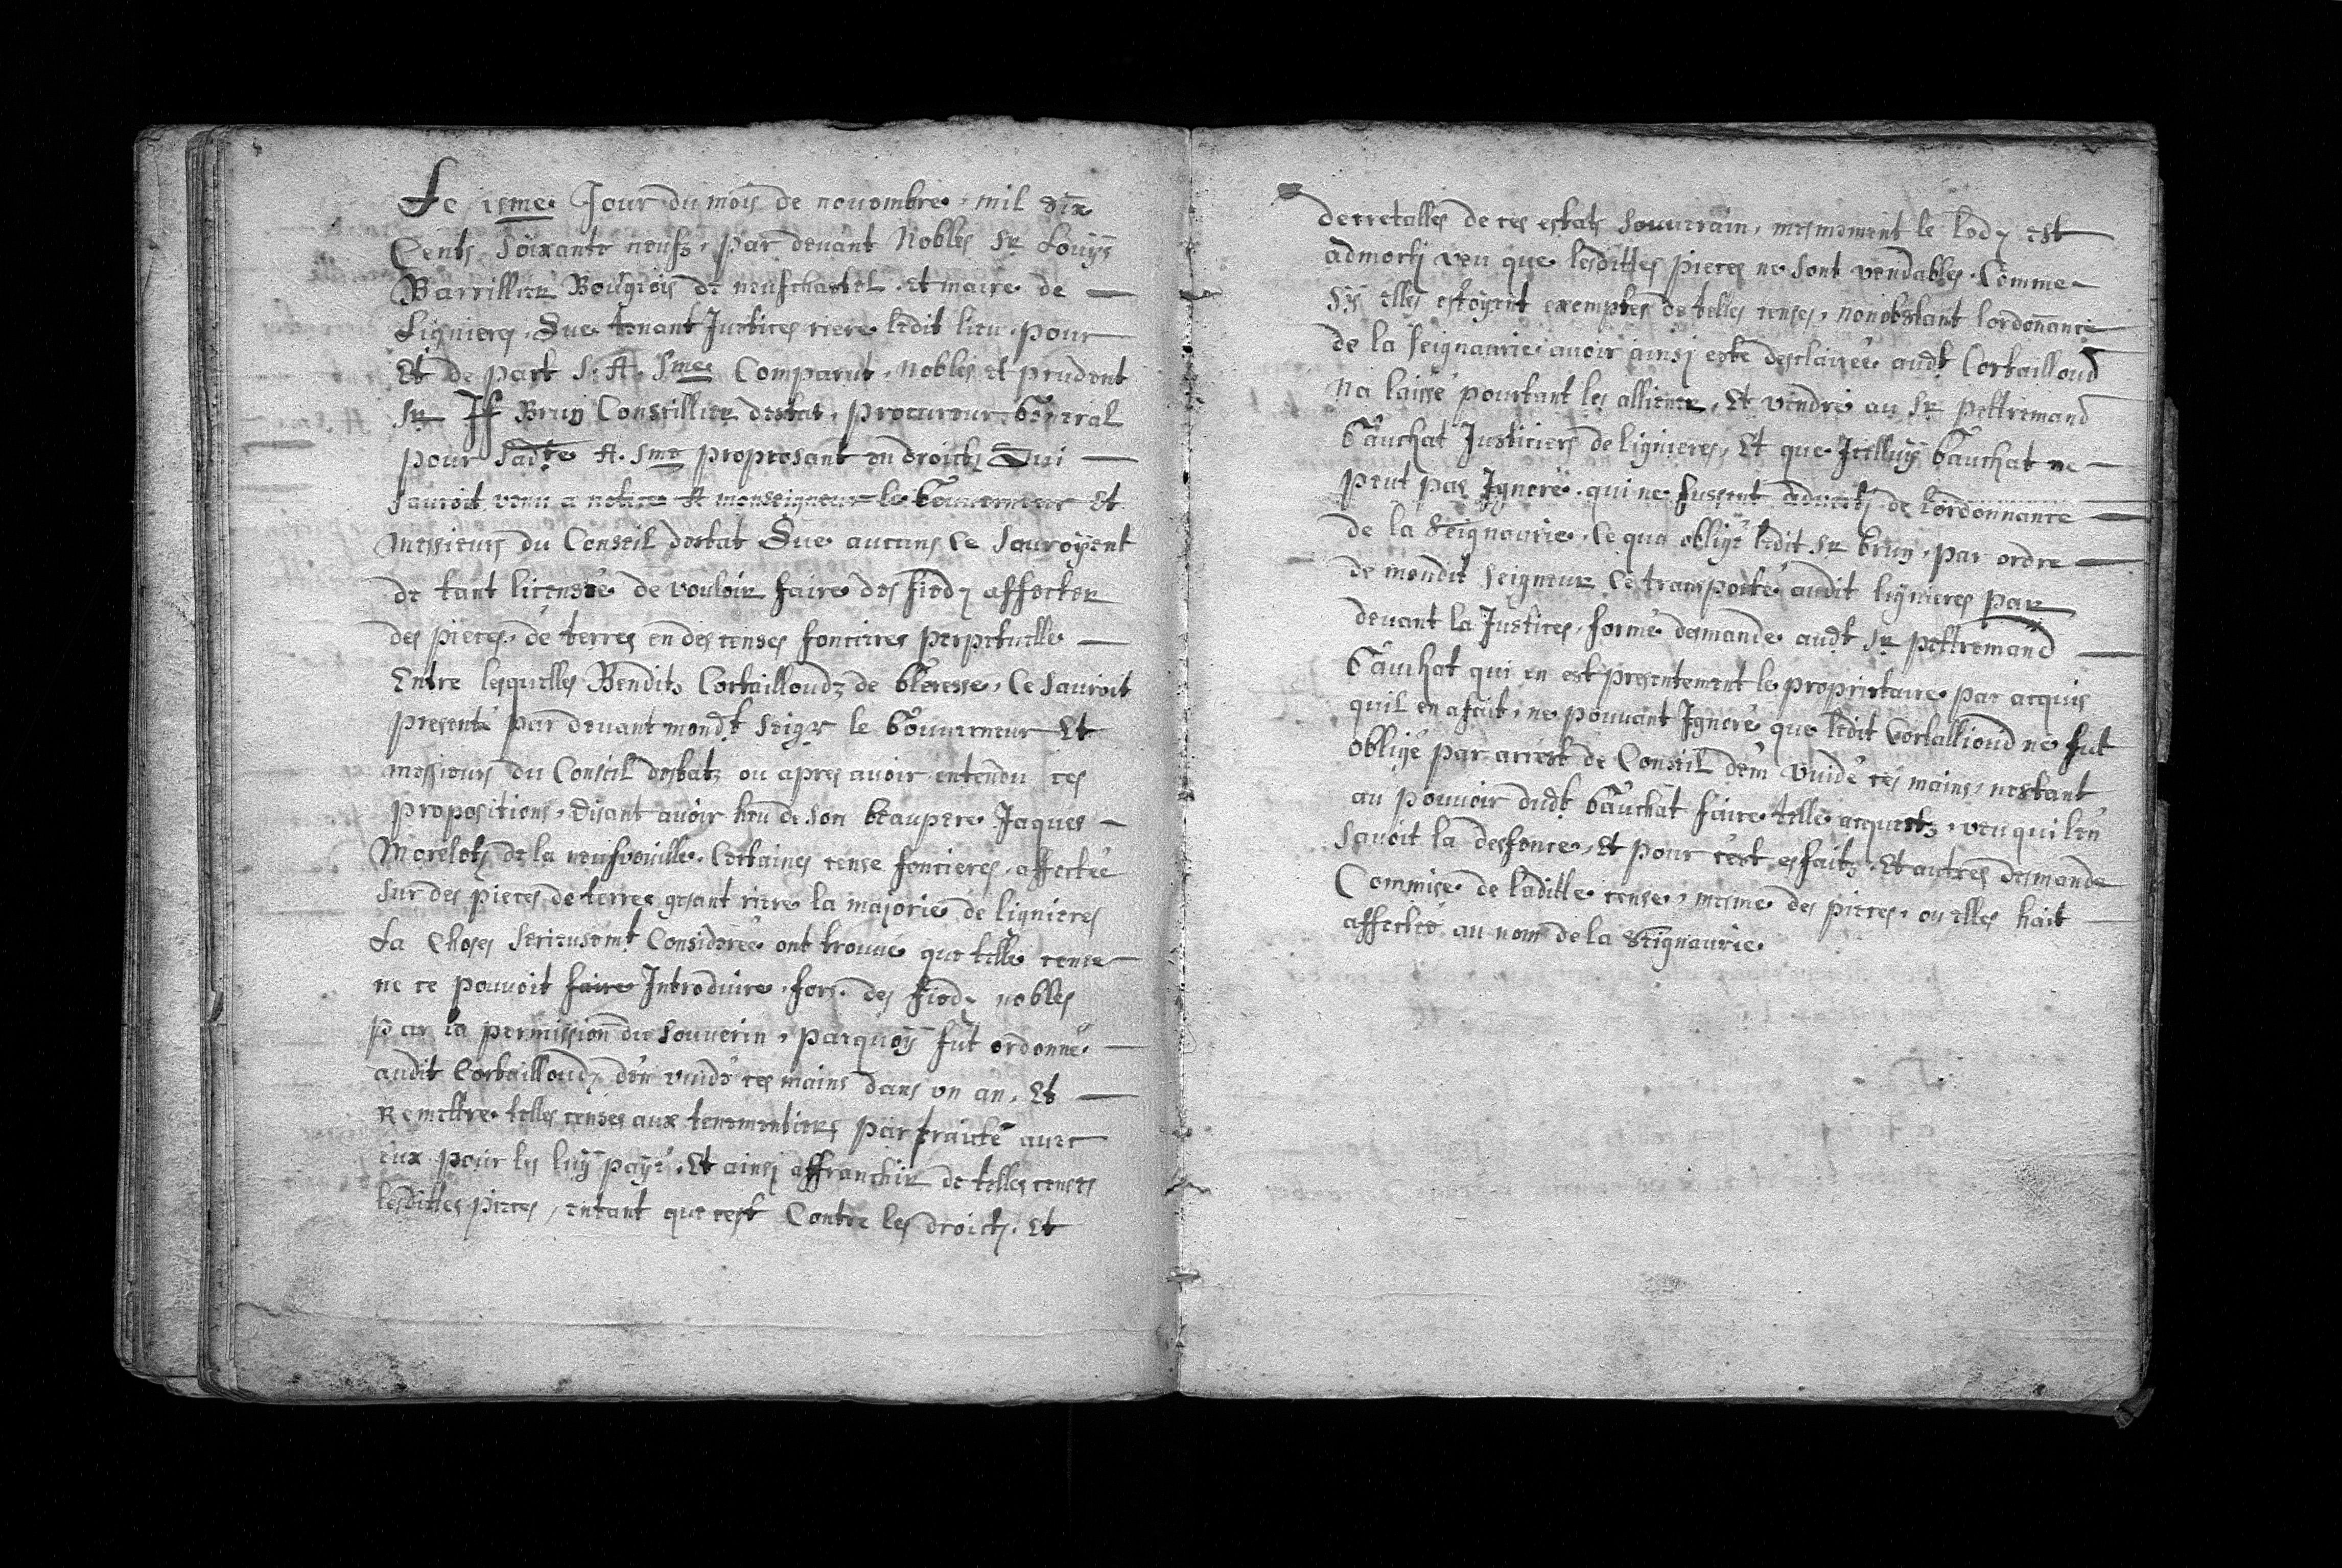 Le 15me. Jour du mois de nouombre, mil Six
Cents, Soixante neufz, par deuant Nobles Sr Louÿs
Barrillier Bougeois de neufchastel et maire de
Lignieres, Que tenant Justices riere ledit lieu, pour
Et de part S. A. Sme. Comparut, Nobles et prudent
Sr Jf Bruy Conseillier destat, procureur General
pour Sadte A. Sme proprosant en droictz Qui
Sauroit venu a notice A monseigneur le Gouuerneur Et
messieurs du Conseil destat Que aucuns Ce Souroyent
de tant licensée de vouloir faire des fiedz affecter
des pieces, de terres en des censes foncieres perpetuelle
Entre lesquelles Benditz Cortailloudz de Gleresse, Ce Sauroit
presenté par deuant mondt Seigr le Gouuerneur Et
messieurs du Conseil destatz ou apres auoir entendu ces
propositions, Disant auoir heu de son beaupere Jaques
Morelotz de la neufveuille, Certaines cense foncieres, affectée
Sur des pieces de terres gesant riere la majorie de lignieres
La Choses Serieusemt Considerée ont trouué que telle cense
ne ce pouuoit faire Introduire, fors. des fiedz nobles
par la permission du Souuerin, parquoÿ fut ordonné
audit Cortailloudz, den vuidé ces mains dans un an, Et
Remettre telles censes aux tenementiers par traicté auec
eux pour les luÿ payé, Et ainsi affranchir de telles censes
lesdittes pieces, entant que cest Contre les droictz, Et
decretalles de ces estats Souuerain, mesmement le lodz est
admorti veu que lesdittes pieces ne sont vendables, Comme
Sÿ elles estoyent exemptes de telles censes, nonobstant lordonnance
de la Seignaurie auoir ainsi esté desclairée audt Cortailloud
Na laissé pourtant les alliener, Et vendre au Sr pettremand
Gauchat Justiciers de lignieres, Et que Icelluÿ Gauchat ne
peut pas Ignoré, qui ne fussent aduertz de lordonnance
de la Seignaurie, Ce qua obligé ledit Sr bruy, par ordre
de mondit Seigneur Ce transporté audit lignieres par
deuant la Justices, formé demande audt Sr pettremand
Gauchat qui en est presentement le proprietaire par acquis
quil en a fait, ne pouuant Ignoré que ledit Cortalliond ne fut
obligé par arrest de Conseil dem vuidé ces mains, nestant
au pouuoir dudt Gauchat faire telle acquestz, veu qui len
Sauoit la desfence, Et pour cest esfaitz, Et autres demande
Commise de laditte cense, mesme des pieces, ou elles hait
affectée au nom de la Seignaurie.